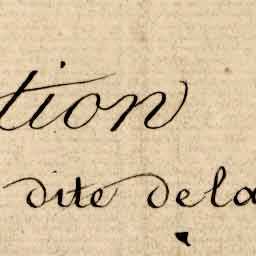 tion
dite dela